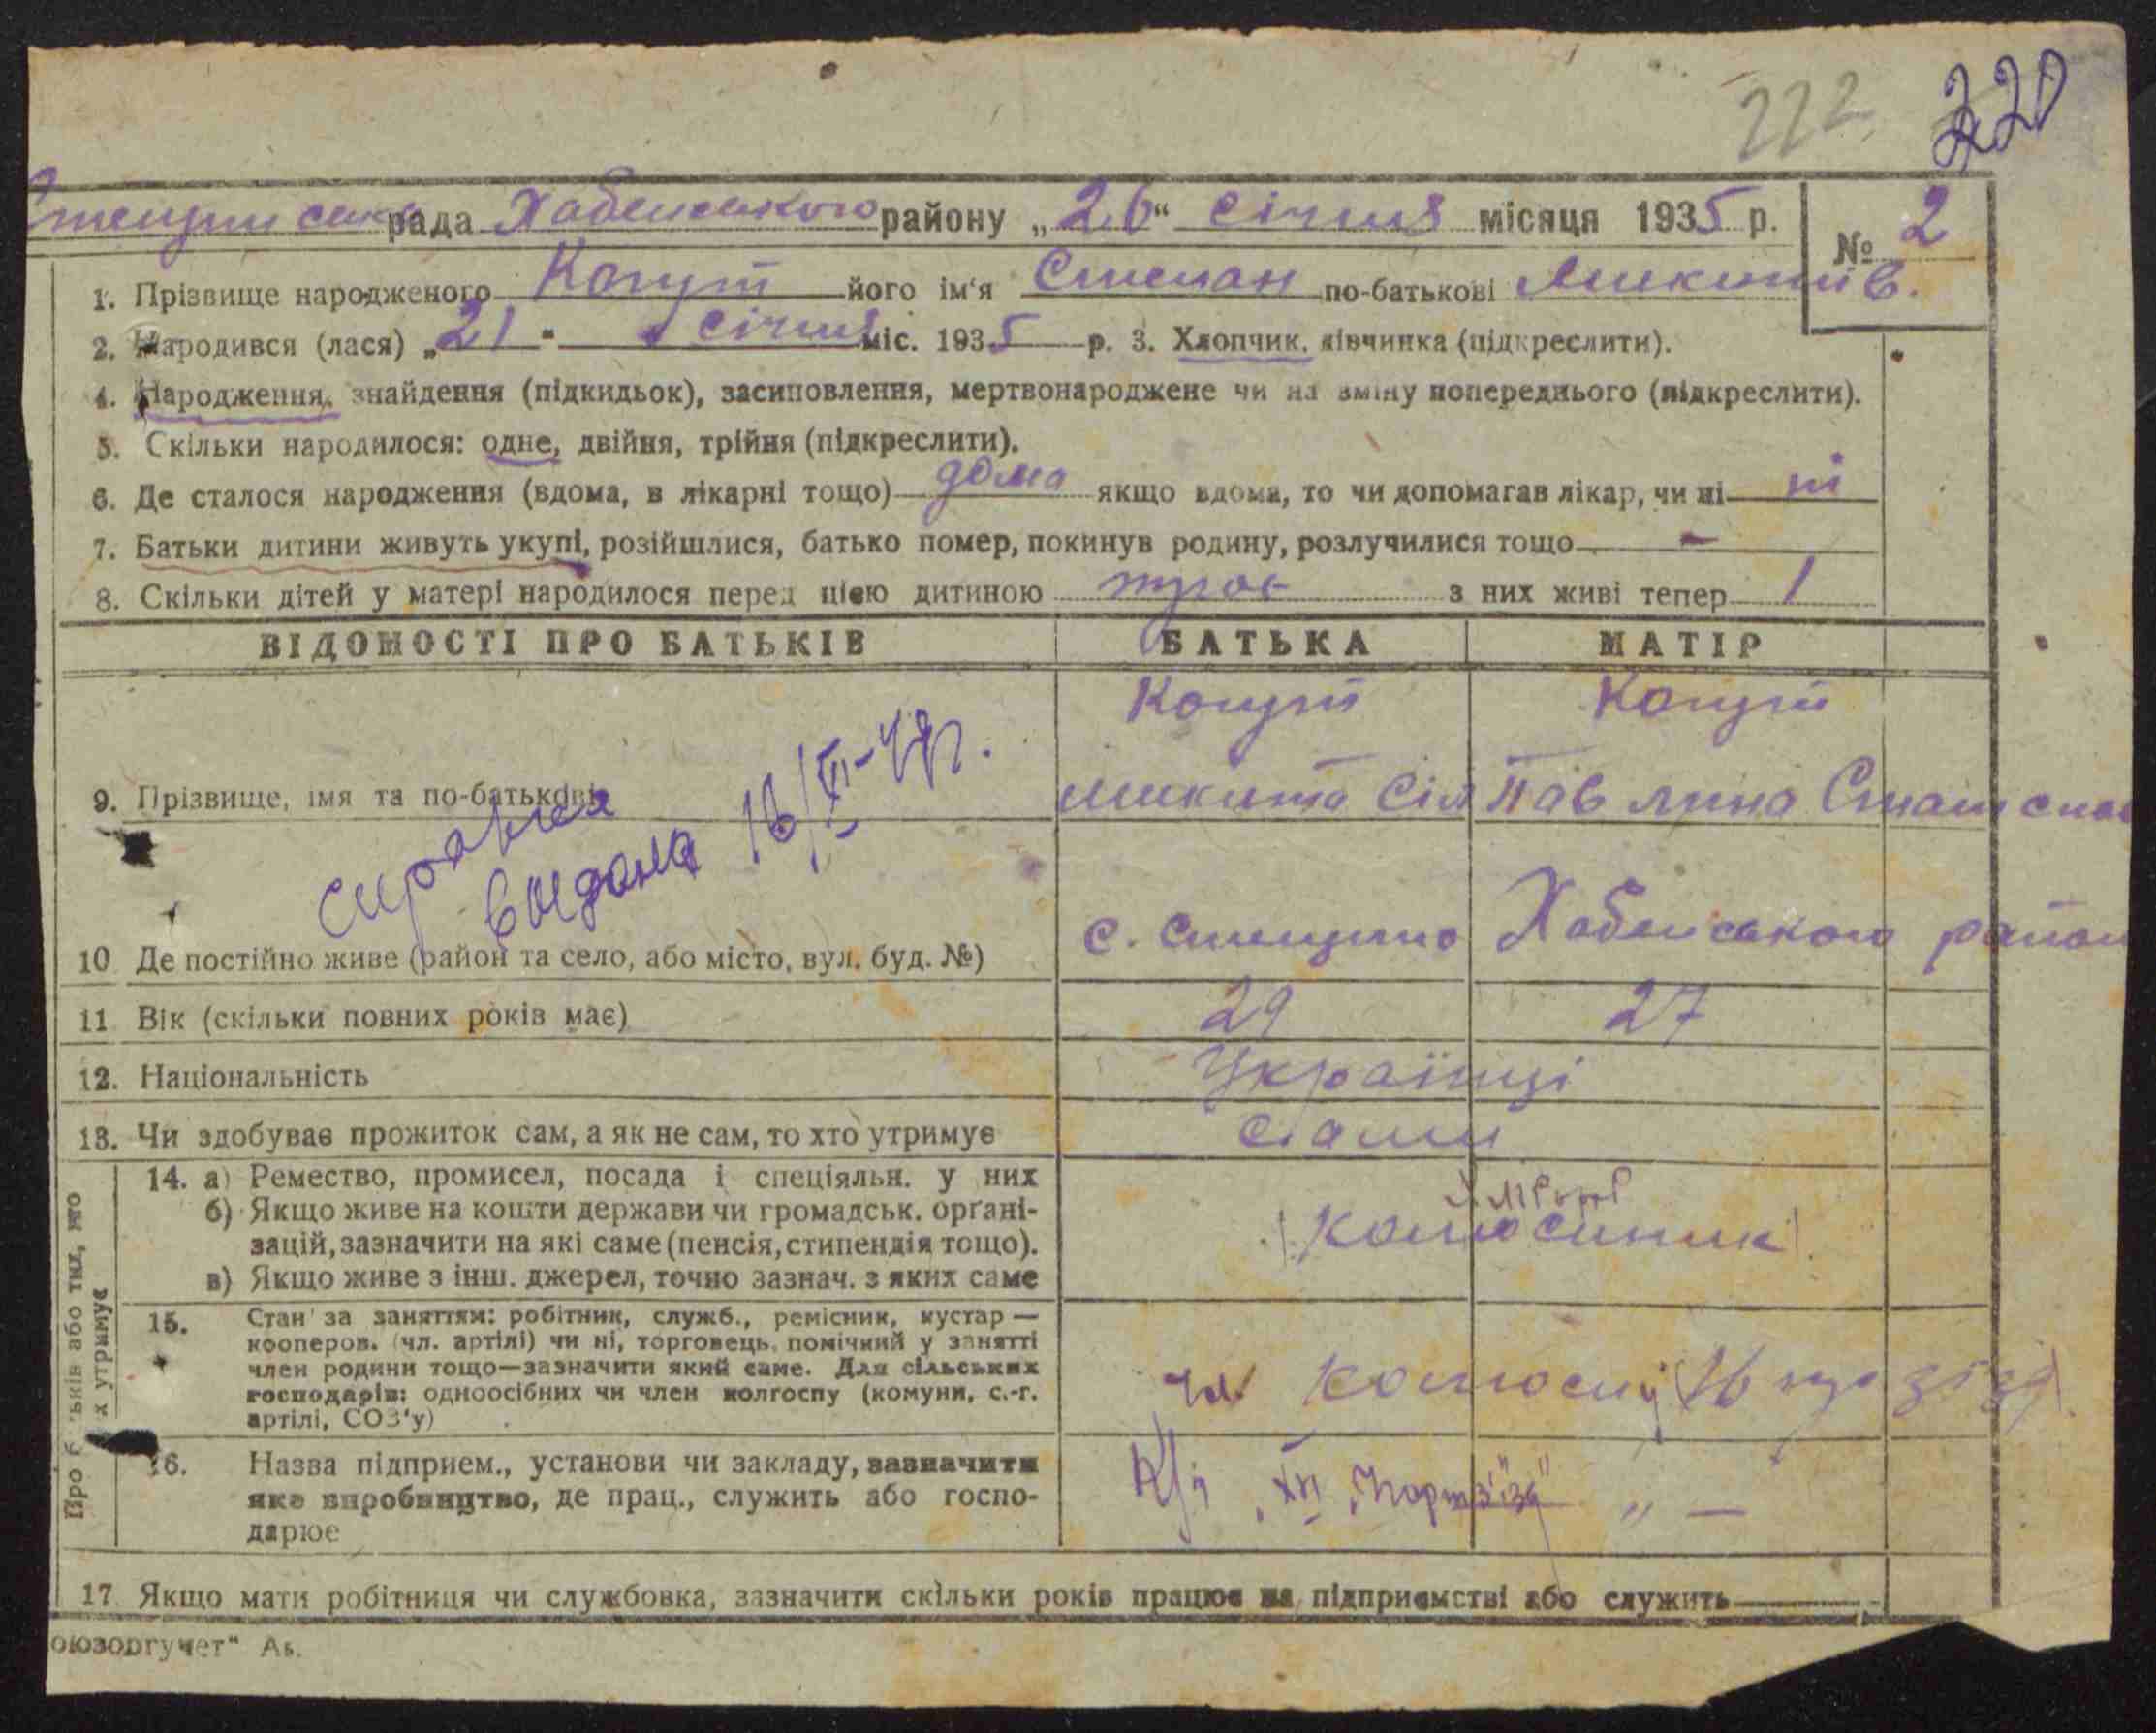 222 220
рада Хабенського району „26“ січня місяця 1935 р. № 2
1. Прізвище народженого Когут його ім‘я Степан по-батькові Микитив.
2. Народився (лася) „21“ січня міс. 1935 р. 3. Хлопчик, дівчинка (підкреслити).
4. Народження, знайдення (підкидьок), засиновлення, мертвонароджене чи на зміну попереднього (підкреслити).
5. Скільки народилося: одне, двійня, трійня (підкреслити).
6. Де сталося народження (вдома, в лікарні тощо) дома якщо вдома, то чи допомагав лікар, чи ні ні
7. Батьки дитини живуть укупі, розійшлися, батько помер, покинув родину, розлучилися тощо —
8. Скільки дітей у матері народилося перед цією дитиною троє з них живі тепер 1
ВІДОМОСТІ ПРО БАТЬКІВ БАТЬКА МАТІР
Когут Когут
9. Прізвище, імя та по-батькові Микита Сил Павлина
справка
выдана 16/
10 Де постійно живе (район та село, або місто, вул. буд. №) с. Стещина Хабенського район
11 Вік (скільки повних років має) 29 27
12. Національність Українці
13. Чи здобуває прожиток сам, а як не сам, то хто утримує сами
14. а) Ремество, промисел, посада і спеціяльн. у них
б) Якщо живе на кошти держави чи громадськ. орґані-
зацій, зазначити на які саме (пенсія, стипендія тощо).
в) Якщо живе з інш. джерел, точно зазнач. з яких саме
Хлібороб
(Колгоспник)
15. Стан за заняттям: робітник, служб., ремісник, кустар —
кооперов. (чл. артілі) чи ні, торговець, помічний у занятті
член родини тощо—зазначити який саме. Для сільських
господарів: одноосібних чи член колгоспу (комуни, с.-г.
артілі, СОЗ‘у)
чл. колгоспу
16. Назва підприєм., установи чи закладу, зазначити
яке виробництво, де прац., служить або госпо-
дарює
" —
17 Якщо мати робітниця чи службовка, зазначити скільки років працює на підприємстві або служить
оюзоргучет“